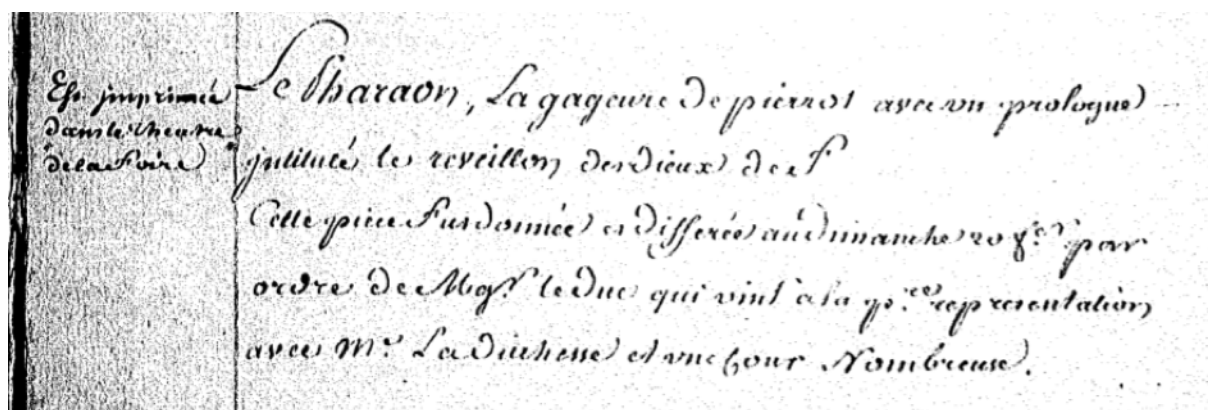 Est jmprimée
dans le theatre
de la foire
Le Pharaon, La gageure de pierrot avec un prologue
jntitulé le reveillon des dieux de f
Cette piece fut donnée et differée au dimanche 20 par
ordre de Mgr. le duc qui vint a la pre. representation
avec Me. La duchesse et une Cour Nombreuse.